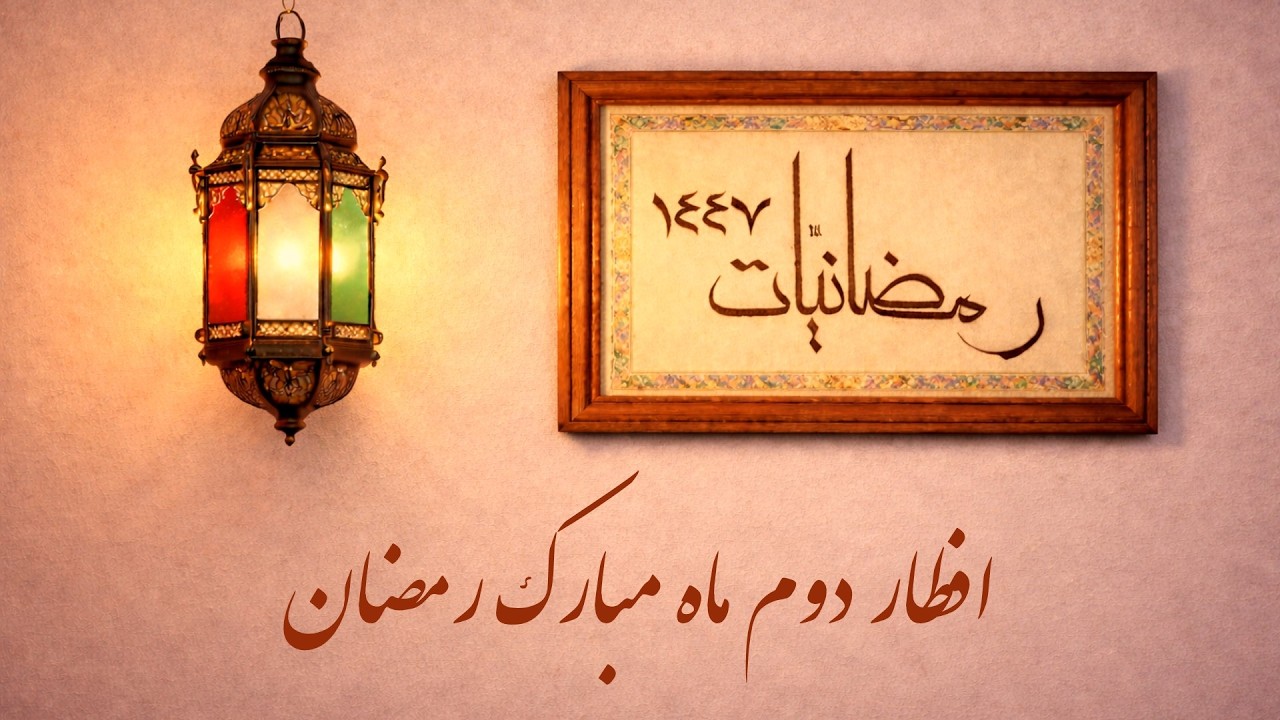 رمضانیّات
١٤٤٧
افطار دوم ماه مبارک رمضان